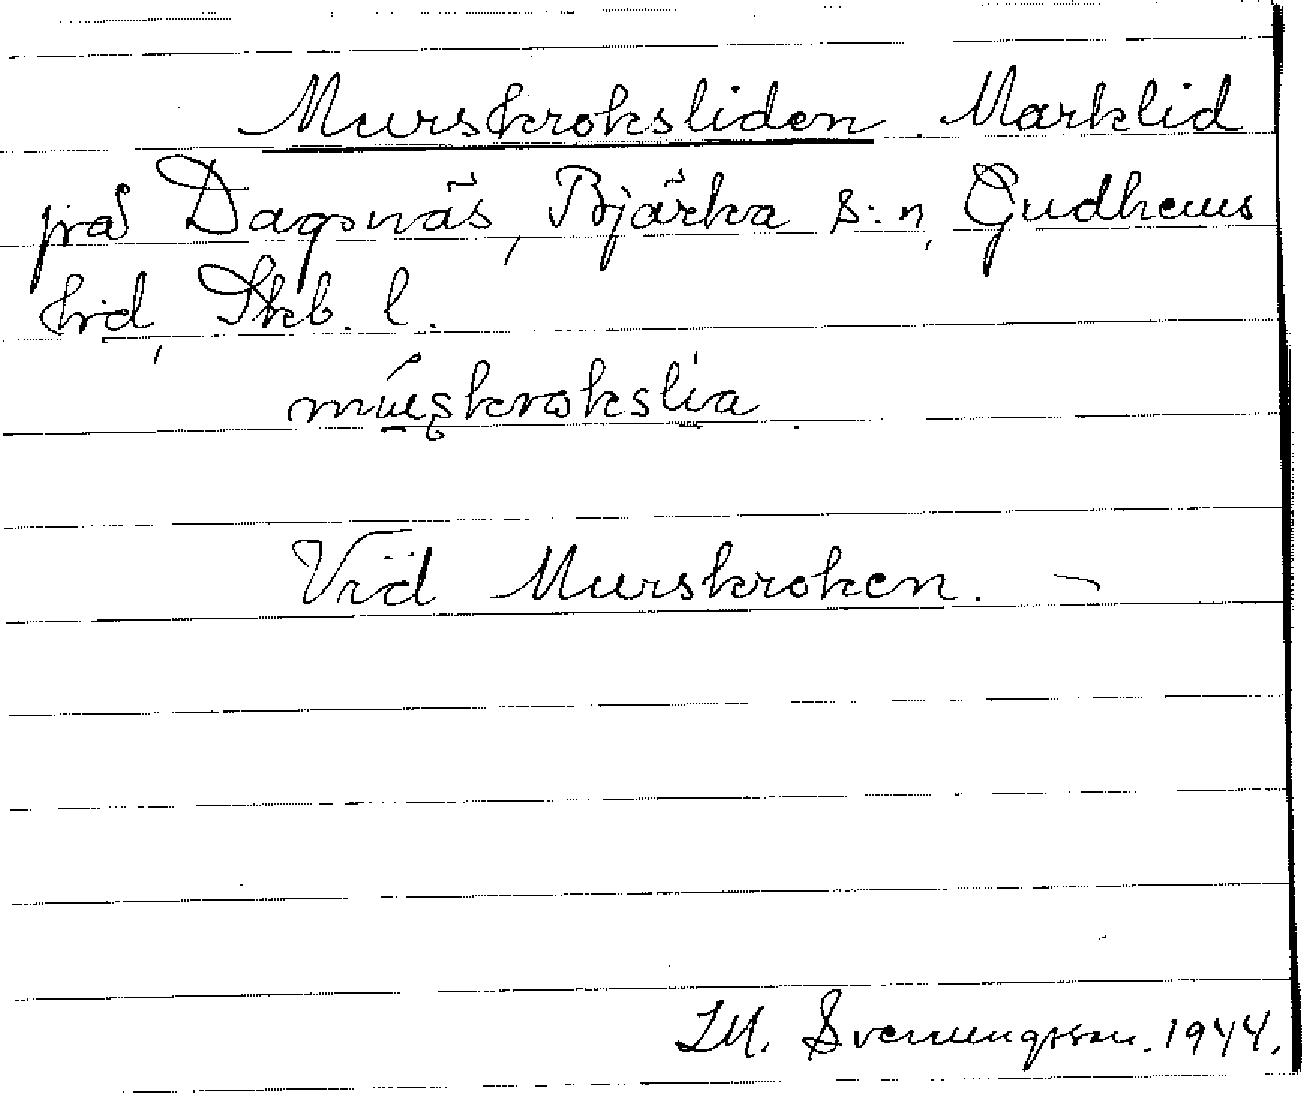 Murskroksliden Marklid
på Dagsnäs, Bjärka s:n, Gudhems
hd, Skb. l.
Vid Murskroken.
M. Svenungsson. 1944.